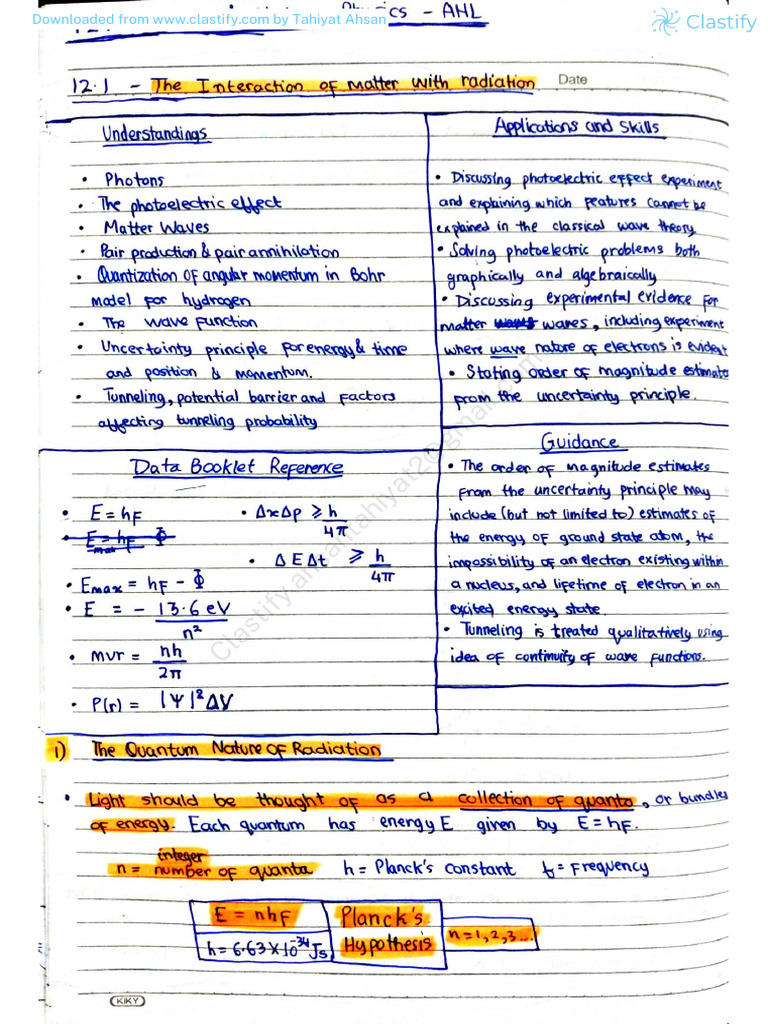 Downloaded from www.clastify.com by Tahiyat Ahsan
Clastify
Physics - AHL
12.1 - The Interaction of Matter with radiation
Date
Understandings
• Photons
• The photoelectric effect
• Matter Waves
• Pair production & pair annihilation
• Quantization of angular momentum in Bohr
model for hydrogen
• The wave function
• Uncertainty principle for energy & time
and position & momentum.
• Tunneling, potential barrier and factors
affecting tunneling probability
Applications and Skills
• Discussing photoelectric effect experiment
and explaining which features cannot be
explained in the classical wave theory
• Solving photoelectric problems both
graphically and algebraically
• Discussing experimental evidence for
matter waves, including experiment
where wave nature of electrons is evident
• Stating order of magnitude estimate
from the uncertainty principle.
Data Booklet Reference
• E = hf
• Emax = hf - Φ
• E = - 13.6 eV / n²
• mvr = nh / 2π
• P(r) = |Ψ|² ΔV
• Δx Δp ≥ h / 4π
• ΔE Δt ≥ h / 4π
Guidance
• The order of magnitude estimates
from the uncertainty principle may
include (but not limited to) estimates of
the energy of ground state atom, the
impossibility of an electron existing within
a nucleus, and lifetime of electron in an
excited energy state.
• Tunneling is treated qualitatively using
idea of continuity of wave functions.
1) The Quantum Nature of Radiation
• Light should be thought of as a collection of quanta, or bundles
of energy. Each quantum has energy E given by E = hf.
integer
n = number of quanta h = Planck's constant f = frequency
E = nhf
h = 6.63 × 10⁻³⁴ Js
Planck's
Hypothesis
n = 1, 2, 3...
KIKY